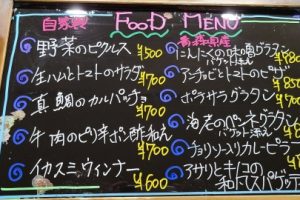 自家製 FOOD MENU
青森県産
野菜のピクルス ¥500
生ハムとトマトのサラダ ¥700
真鯛のカルパッチョ ¥700
牛肉のピリ辛ポン酢和え ¥700
イカスミウィンナー ¥600
バケット添え ¥980
アンチョビとトマトのピザ ¥850
ポテサラグラタン ¥700
海老のペンネグラタン
バケット添え
チョリソースリカレーピラ
アサリとキノコの
和風スパゲッテ